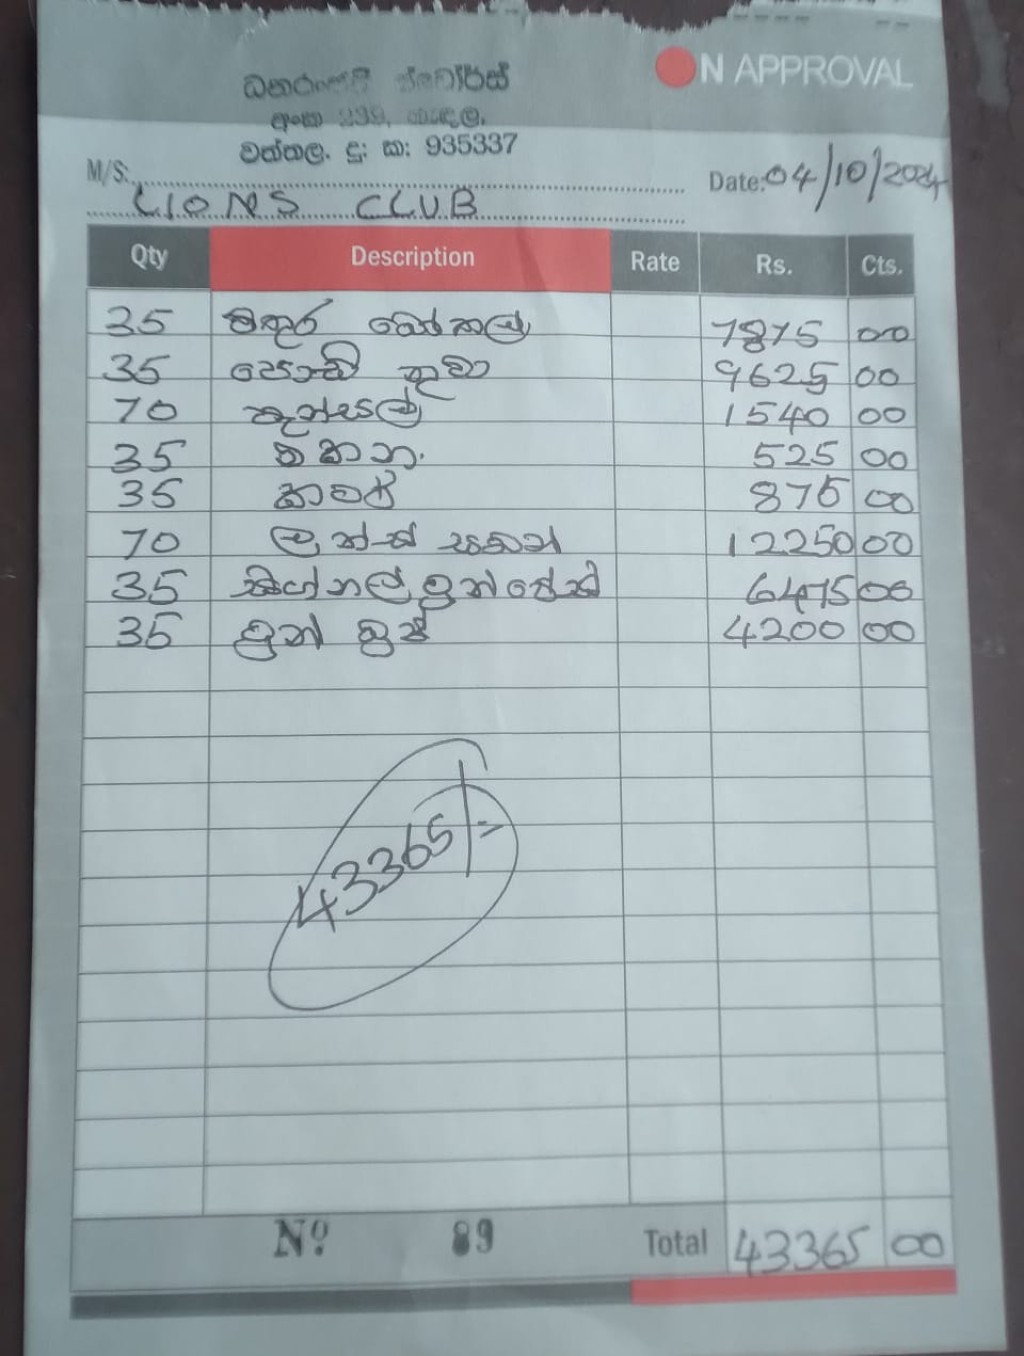 ON APPROVAL
ස්ටෝර්ස්
අංක 239,
වත්තල. දු: ක: 935337
M/S:
Date: 04/10/2024
LIONS CLUB
Qty Description Rate Rs. Cts.
35 වතුර බෝතල් 7875 00
35 9625 00
70 පැන්සල් 1540 00
35 මකන 525 00
35 කටර් 875 00
70 12250 00
35 6475 00
35 4200 00
43365/=
Nº 89 Total 43365 00